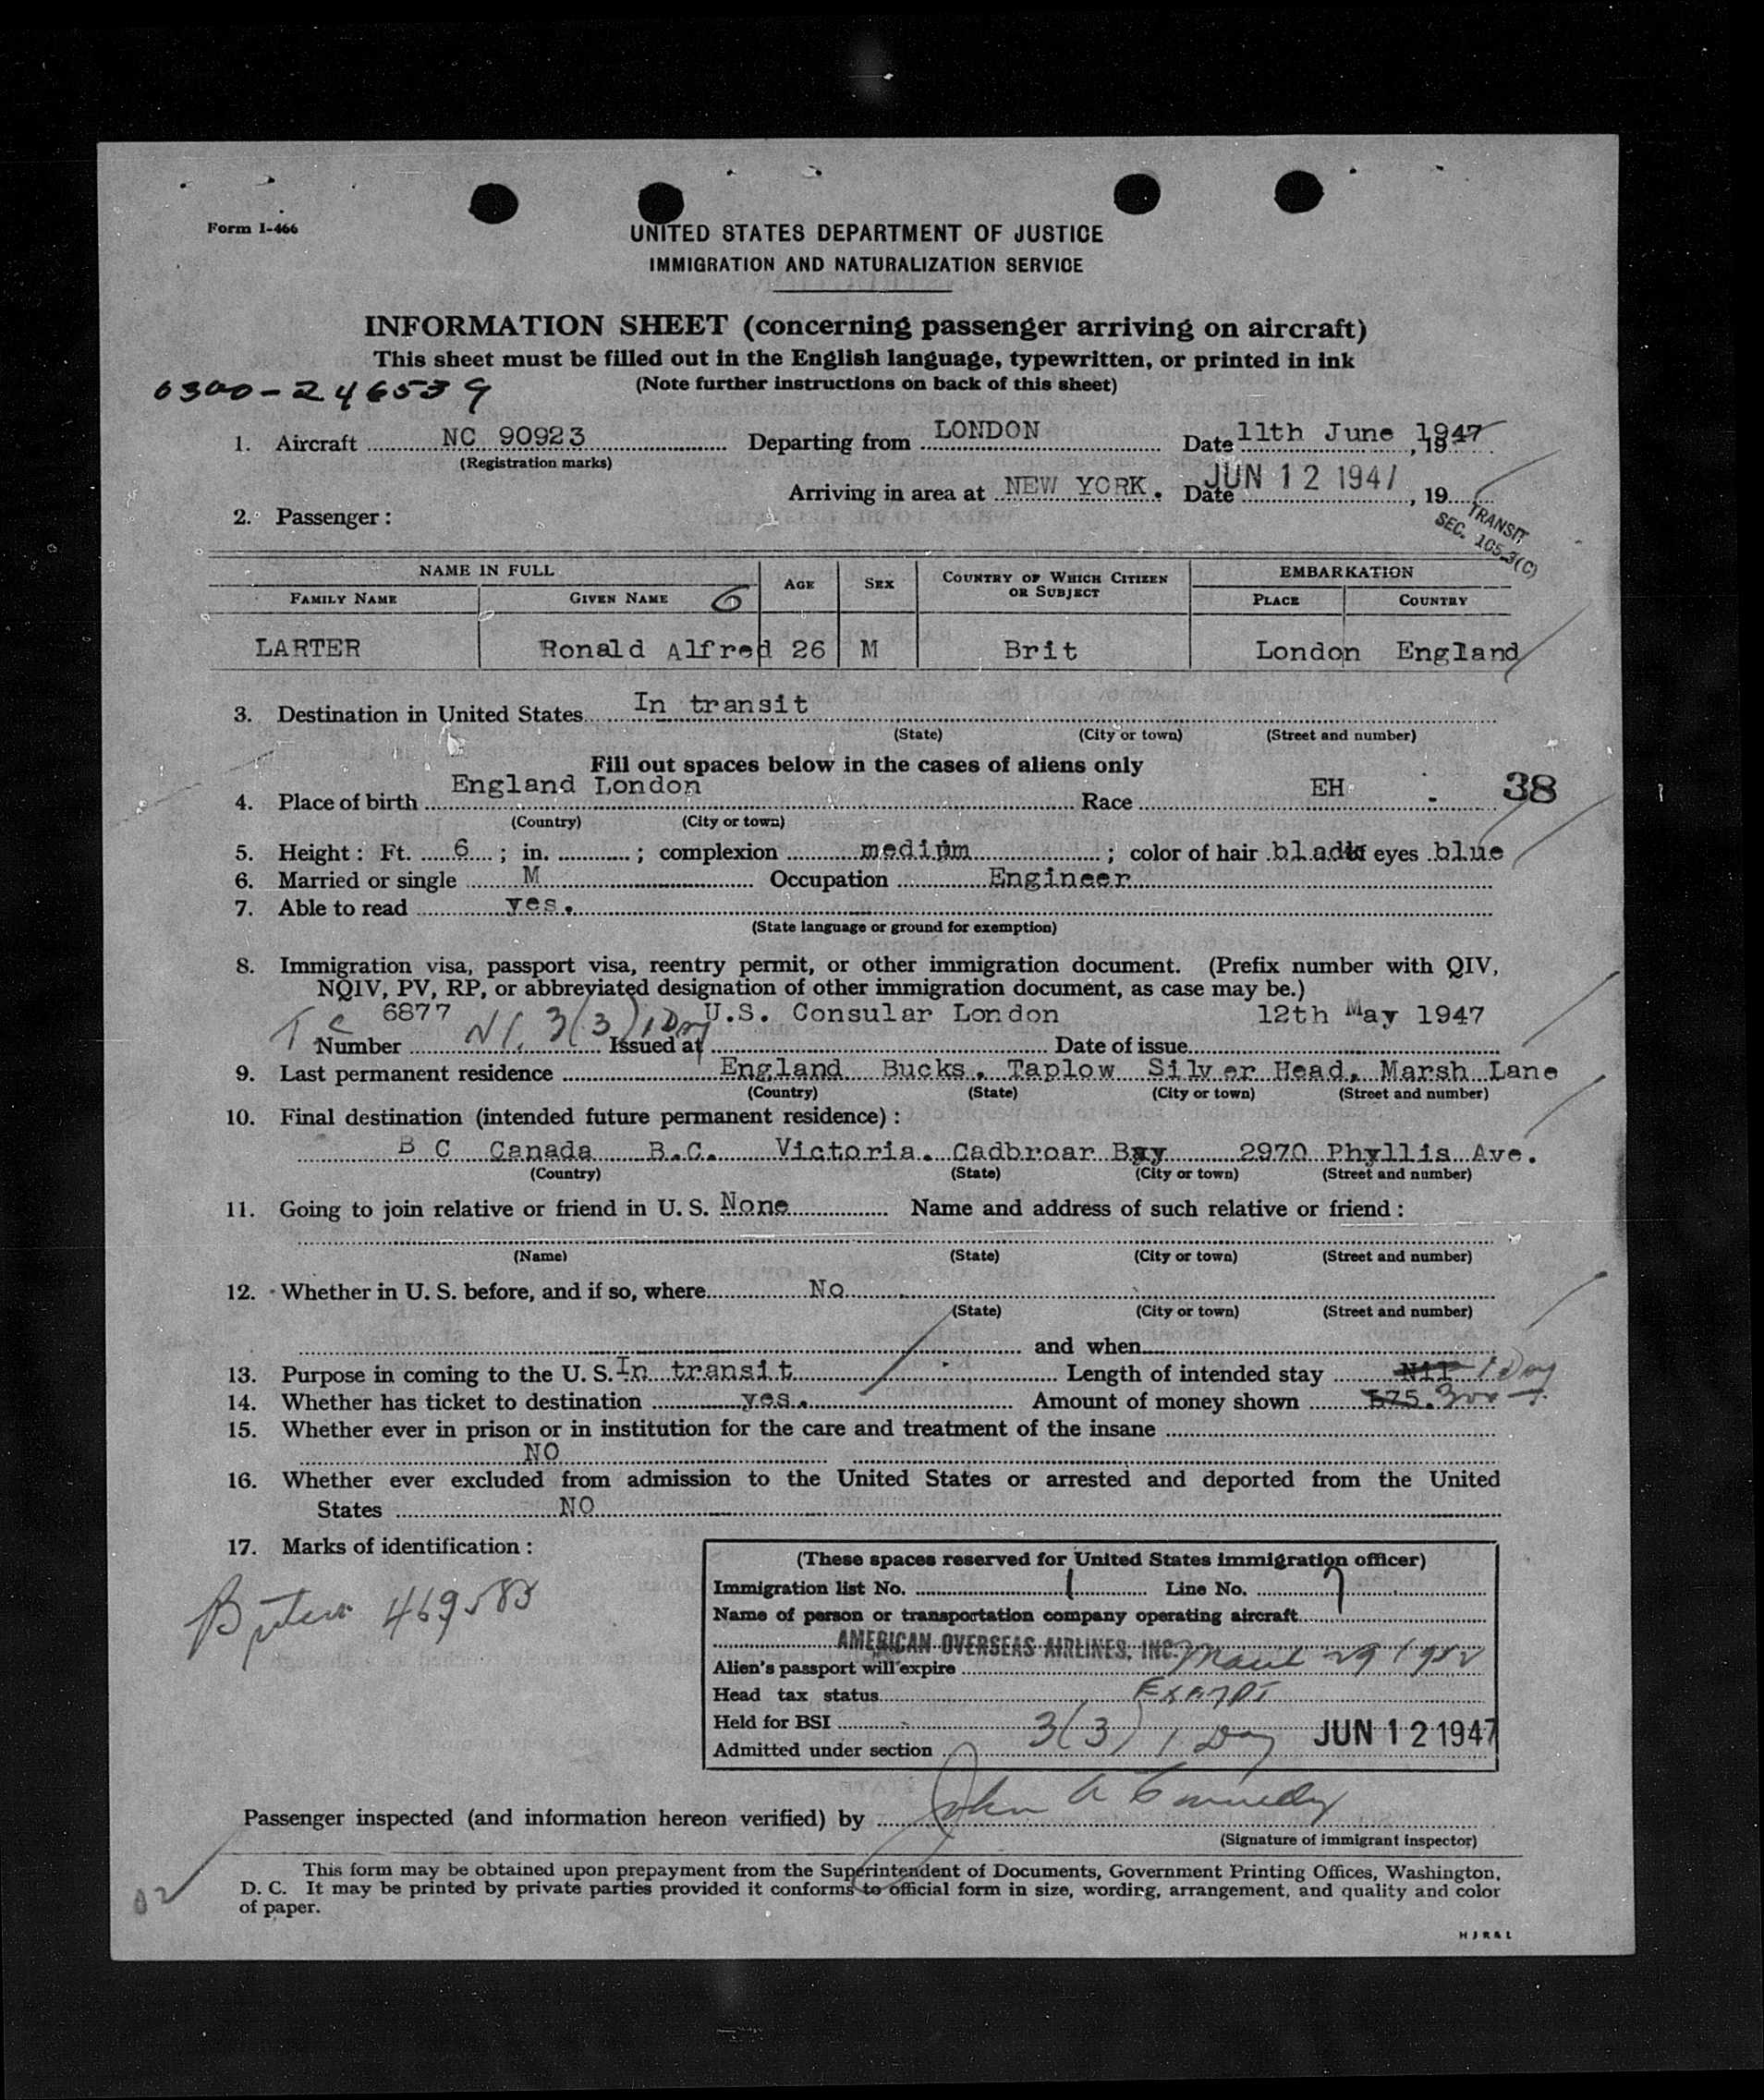 Form I-466
UNITED STATES DEPARTMENT OF JUSTICE
IMMIGRATION AND NATURALIZATION SERVICE
INFORMATION SHEET (concerning passenger arriving on aircraft)
This sheet must be filled out in the English language, typewritten, or printed in ink
(Note further instructions on back of this sheet)
0300-246539
1. Aircraft NC 90923 Departing from LONDON Date 11th June, 1947
(Registration marks)
Arriving in area at NEW YORK. Date JUN 12 1947, 19
TRANSIT
SEC. 105.3(C)
2. Passenger:
NAME IN FULL AGE SEX COUNTRY OF WHICH CITIZEN OR SUBJECT EMBARKATION
FAMILY NAME GIVEN NAME 6 PLACE COUNTRY
LARTER Ronald Alfred 26 M Brit London England
3. Destination in United States In transit
(State) (City or town) (Street and number)
Fill out spaces below in the cases of aliens only
4. Place of birth England London Race EH 38
(Country) (City or town)
5. Height: Ft. 6; in. ; complexion medium; color of hair black eyes blue
6. Married or single M Occupation Engineer
7. Able to read yes.
(State language or ground for exemption)
8. Immigration visa, passport visa, reentry permit, or other immigration document. (Prefix number with QIV,
NQIV, PV, RP, or abbreviated designation of other immigration document, as case may be.)
T C 6877 3(3) 1 Day U.S. Consular London 12th May 1947
Number Issued at Date of issue
9. Last permanent residence England Bucks. Taplow Silver Head, Marsh Lane
(Country) (State) (City or town) (Street and number)
10. Final destination (intended future permanent residence):
B C Canada B.C. Victoria. Cadbroar Bay 2970 Phyllis Ave.
(Country) (State) (City or town) (Street and number)
11. Going to join relative or friend in U. S. None Name and address of such relative or friend:
(Name) (State) (City or town) (Street and number)
12. Whether in U. S. before, and if so, where No
(State) (City or town) (Street and number)
and when
13. Purpose in coming to the U. S. In transit Length of intended stay Nil 1 Day
14. Whether has ticket to destination yes. Amount of money shown
15. Whether ever in prison or in institution for the care and treatment of the insane
NO
16. Whether ever excluded from admission to the United States or arrested and deported from the United
States NO
17. Marks of identification:
469583
(These spaces reserved for United States immigration officer)
Immigration list No. 1 Line No. 7
Name of person or transportation company operating aircraft
AMERICAN OVERSEAS AIRLINES, INC.
Alien's passport will expire March 29 1952
Head tax status Exempt
Held for BSI
Admitted under section 3(3) 1 Day JUN 12 1947
Passenger inspected (and information hereon verified) by John A
(Signature of immigrant inspector)
This form may be obtained upon prepayment from the Superintendent of Documents, Government Printing Offices, Washington,
D. C. It may be printed by private parties provided it conforms to official form in size, wording, arrangement, and quality and color
of paper.